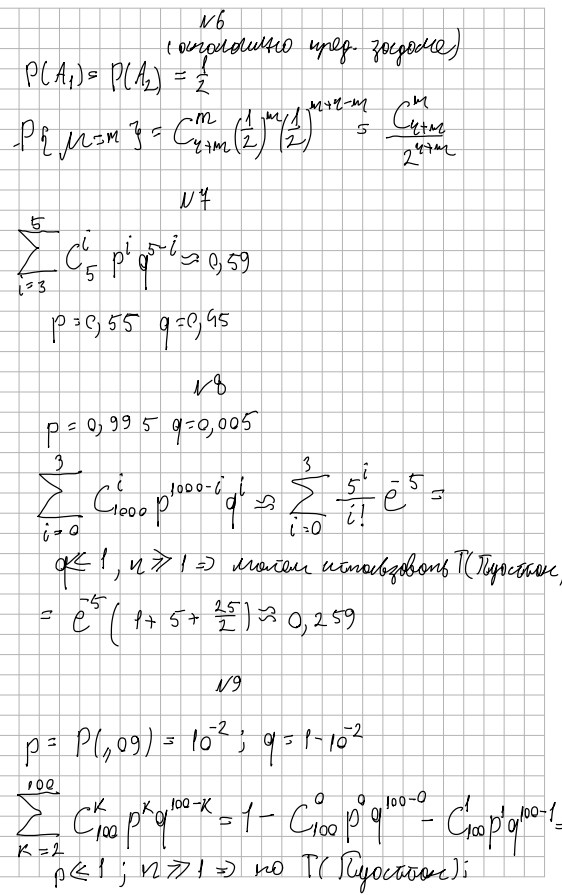 №6
(аналогично пред. задаче)
P(A₁) = P(A₂) = 1/2
P{μ=m} = C_{n+m}^{m} (1/2)^m (1/2)^{m+n-m} = C_{n+m}^{m} / 2^{n+m}
№7
∑_{i=3}^{5} C_5^i p^i q^{5-i} ≈ 0,59
p=0,55 q=0,45
№8
p = 0,995 q=0,005
∑_{i=0}^{3} C_{1000}^i p^{1000-i} q^i ≈ ∑_{i=0}^{3} 5^i/i! e^{-5} =
q≪1, n≫1 => можем использовать T(Пуассон)
= e^{-5} (1+5+25/2) ≈ 0,259
№9
p = P(„09) = 10^{-2}; q = 1-10^{-2}
∑_{k=2}^{100} C_{100}^k p^k q^{100-k} = 1 - C_{100}^0 p^0 q^{100-0} - C_{100}^1 p^1 q^{100-1} =
p≪1; n≫1 => по T(Пуассон);